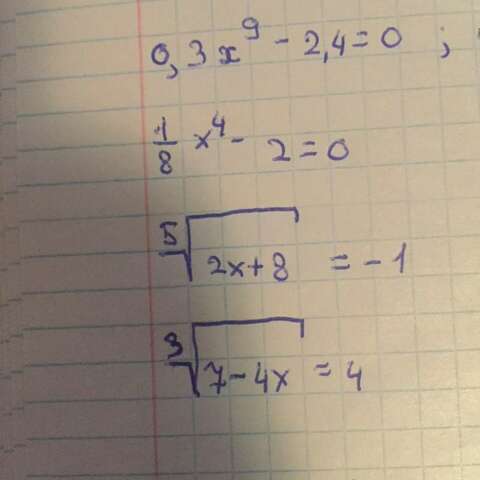 0,3x⁹ - 2,4 = 0 ;
1/8 x⁴ - 2 = 0
⁵√(2x+8) = -1
³√(7-4x) = 4